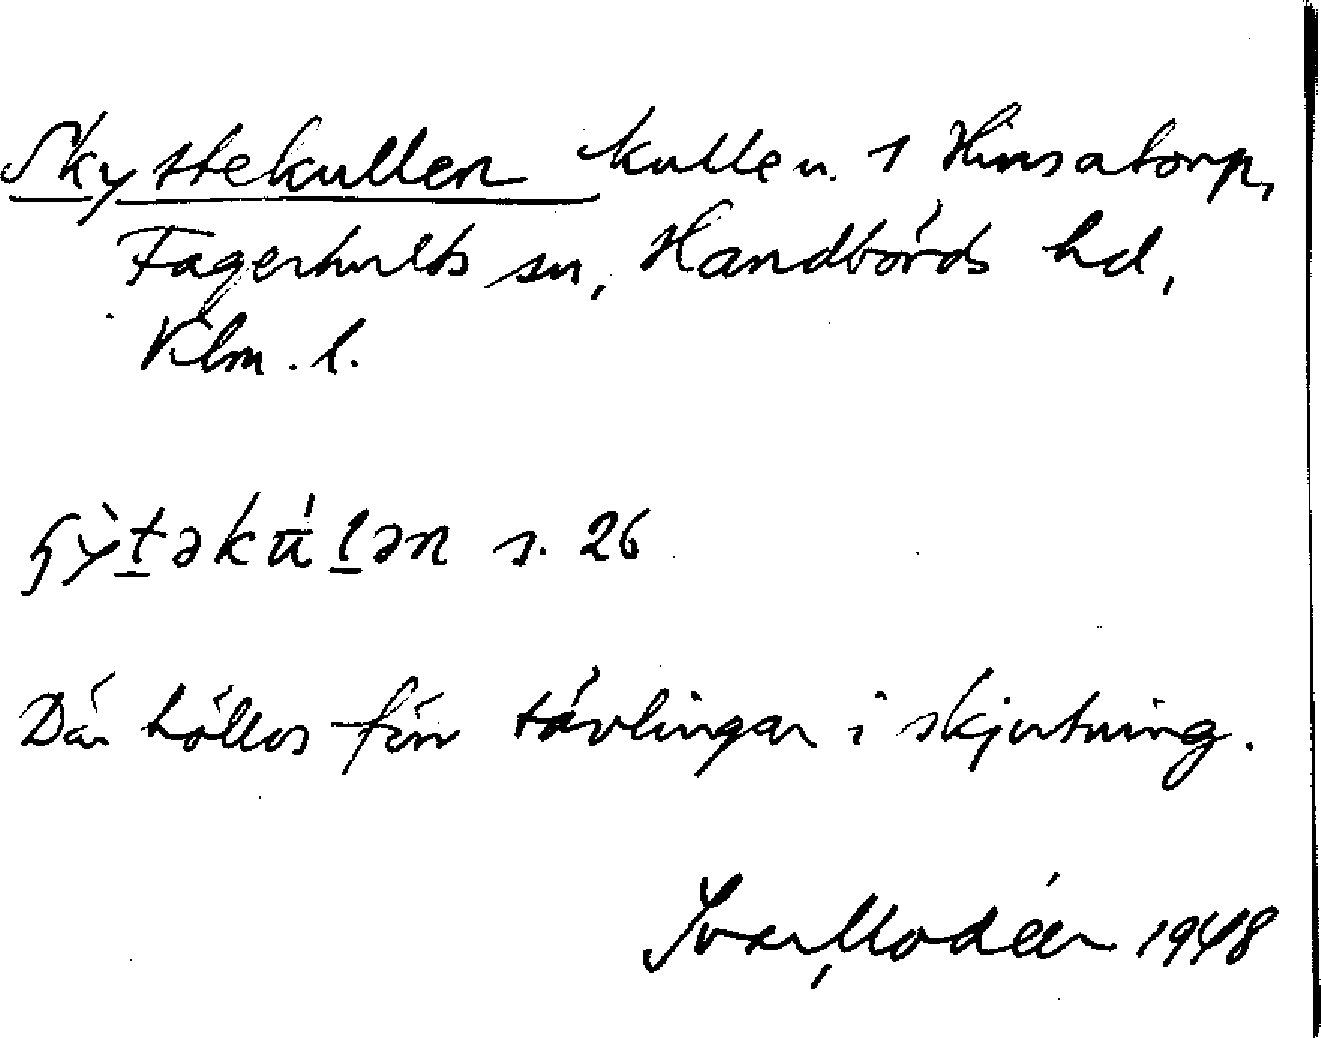 Skyttekullen kulle u. 1 Hinsatorp,
Fagerhults sn, Handbörds hd,
Klm. l.
s. 26
Där hölls förr tävlingar i skjutning.
Ivar Modéer 1948